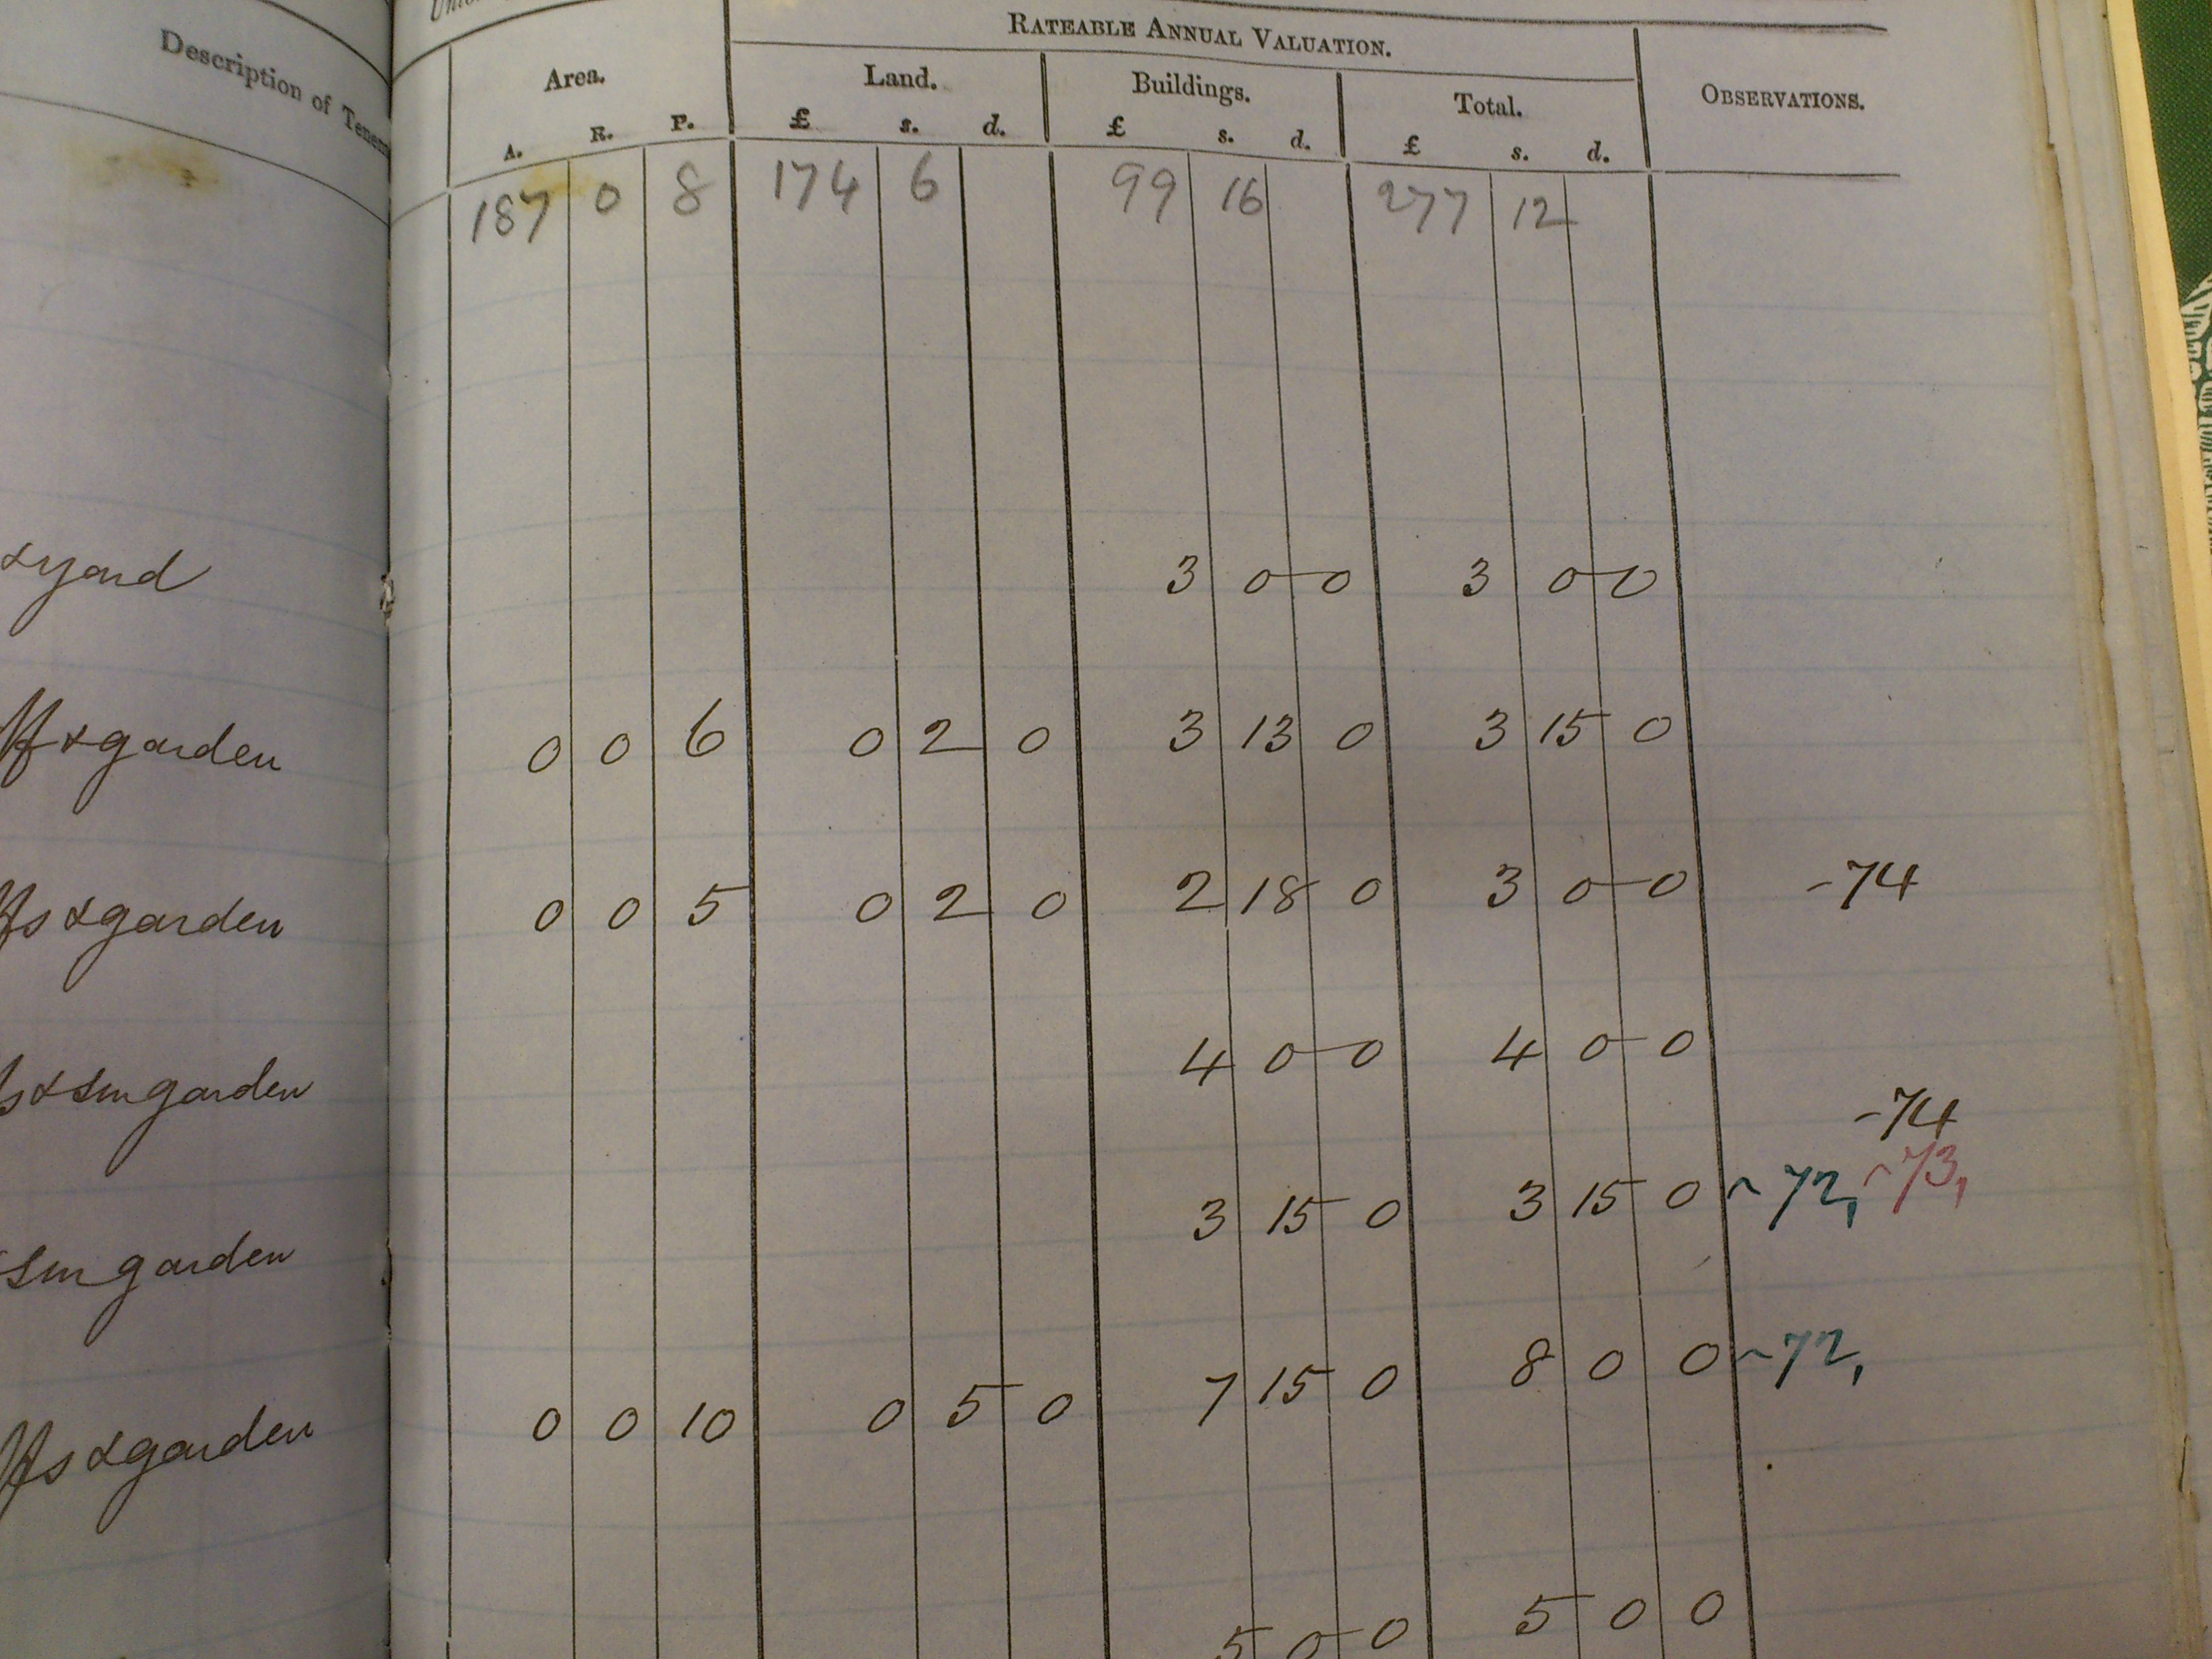 RATEABLE ANNUAL VALUATION.
Description of Tenem
Area. Land. Buildings. Total. OBSERVATIONS.
A. R. P. £ s. d. £ s. d. £ s. d.
187 0 8 174 6 99 16 277 12
& yard 3 0 0 3 0 0
& garden 0 0 6 0 2 0 3 13 0 3 15 0
Hs & garden 0 0 5 0 2 0 2 18 0 3 0 0 -74
s & sm garden 4 0 0 4 0 0
-74
sm garden 3 15 0 3 15 0 ~72, ~73,
Hs & garden 0 0 10 0 5 0 7 15 0 8 0 0 ~72,
5 0 0 5 0 0